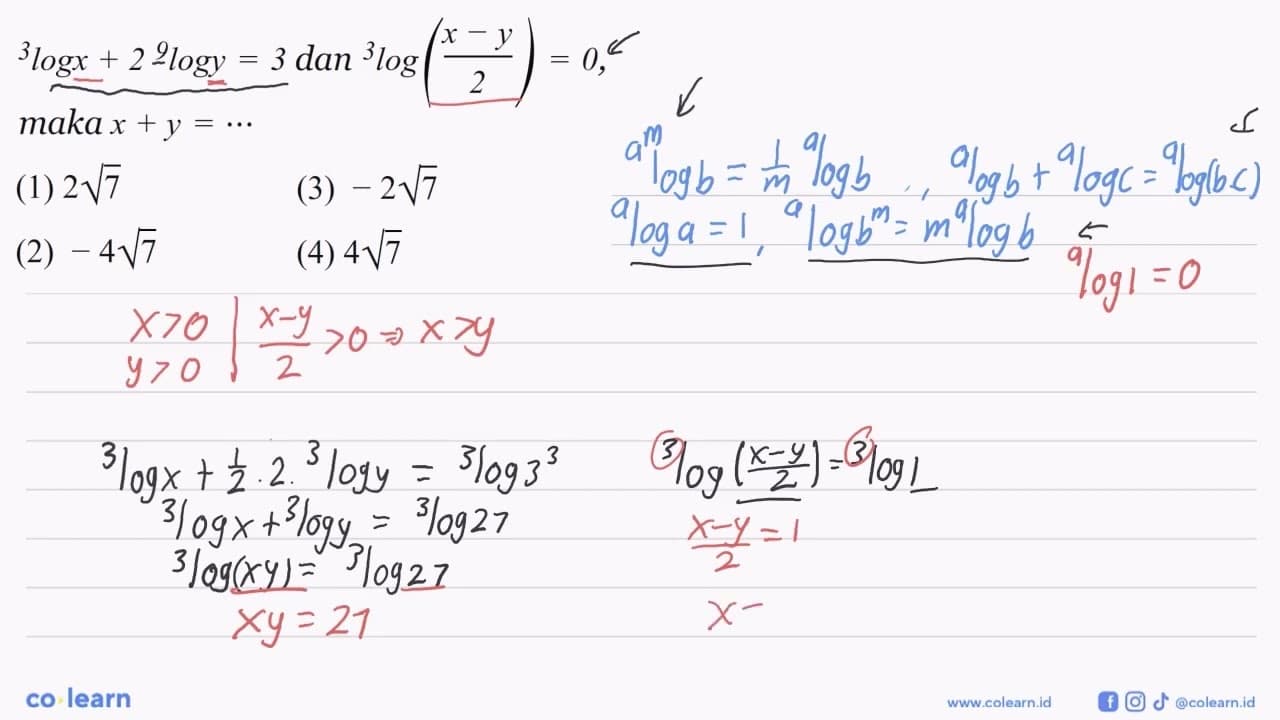 ³logx + 2 ⁹logy = 3 dan ³log((x − y)/2) = 0,
maka x + y = ⋯
(1) 2√7 (3) − 2√7
(2) − 4√7 (4) 4√7
a^m log b = 1/m ᵃlog b ,, ᵃlog b + ᵃlog c = ᵃlog(bc)
ᵃlog a = 1, ᵃlog b^m = m ᵃlog b
ᵃlog 1 = 0
x > 0 | (x−y)/2 > 0 ⇒ x > y
y > 0
³log x + 1/2 . 2. ³log y = ³log 3³
³log x + ³log y = ³log 27
³log(xy) = ³log 27
xy = 27
³log((x−y)/2) = ³log 1
(x−y)/2 = 1
x −
co·learn
www.colearn.id
@colearn.id